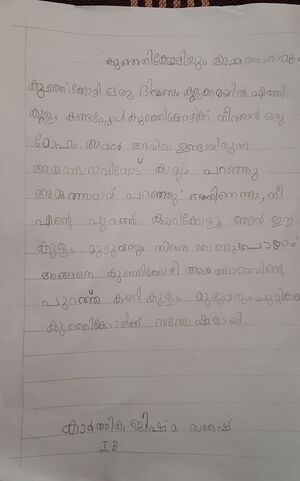 കുഞ്ഞിക്കോഴിയും അമ്മത്താറാവും
കുഞ്ഞിക്കോഴി ഒരു ദിവസം കുളക്കരയിൽ എത്തി
കുളം കണ്ടപ്പോൾ കുഞ്ഞിക്കോഴിക്ക് നീന്താൻ ഒരു
മോഹം. അവൾ അവിടെ ഉണ്ടായിരുന്ന
അമ്മത്താറാവിനോട് കാര്യം പറഞ്ഞു.
അമ്മത്താറാവ് പറഞ്ഞു അതിനെന്താ, നീ
എന്റെ പുറത്ത് കയറിക്കോളൂ ഞാൻ ഈ
കുളം മുഴുവനും നിന്നെ കൊണ്ടുപോകാം
അങ്ങനെ കുഞ്ഞിക്കോഴി അമ്മത്താറാവിന്റെ
പുറത്ത് കയറി കുളം മുഴുവനും ചുറ്റിക്കണ്ടു
കുഞ്ഞിക്കോഴിക്ക് സന്തോഷമായി.
കാർത്തിക ജിഷ്മ
I B